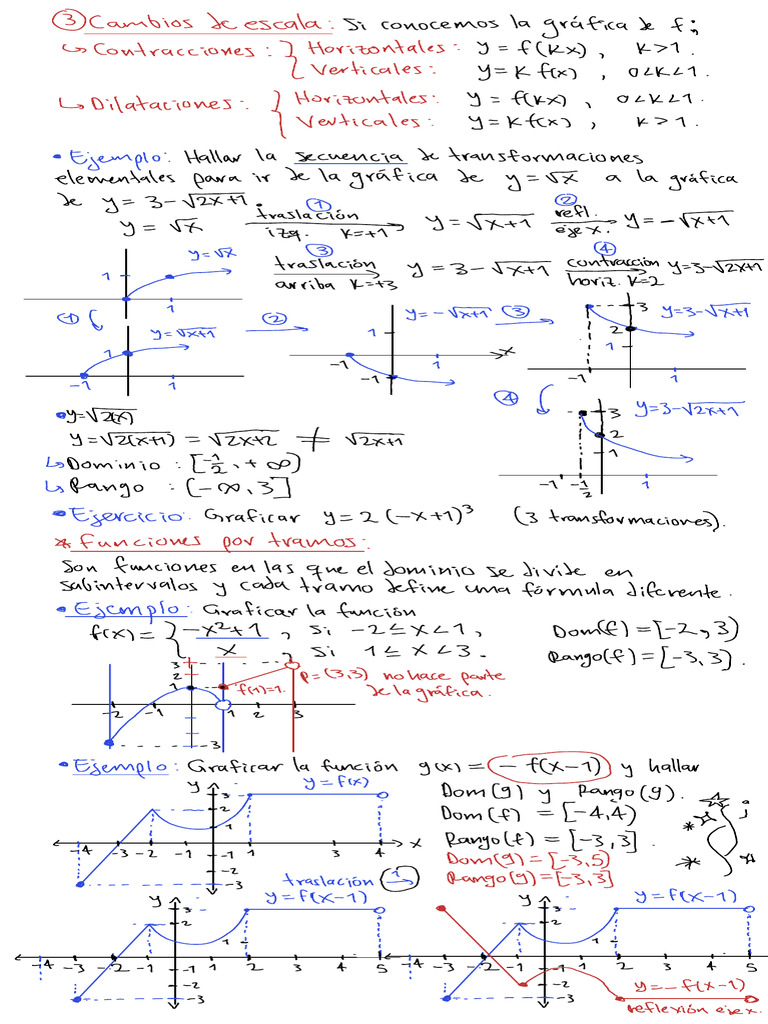 ③ Cambios de escala: Si conocemos la gráfica de f;
↳ Contracciones: { Horizontales: y = f(kx), k>1.
Verticales: y = k f(x), 0<k<1.
↳ Dilataciones: { Horizontales: y = f(kx), 0<k<1.
Verticales: y = k f(x), k>1.
• Ejemplo: Hallar la secuencia de transformaciones
elementales para ir de la gráfica de y=√x a la gráfica
de y = 3-√2x+1.
y = √x ① traslación izq. k=+1 y = √x+1 ② refl. eje x. y = -√x+1
③ traslación arriba k=+3 y = 3-√x+1 ④ contracción horiz. k=2 y=3-√2x+1
y=√x
1
1
① y=√x+1
1
-1 1
② y=-√x+1
1
-1 1 x
-1
③ y=3-√x+1
3
2
1
-1 1
④ y=3-√2x+1
3
2
1
-1 -1/2 1
• y=√2(x)
y=√2(x+1) = √2x+2 ≠ √2x+1
↳ Dominio: [-1/2, +∞)
↳ Rango: (-∞, 3]
• Ejercicio: Graficar y = 2(-x+1)³ (3 transformaciones).
* Funciones por tramos:
Son funciones en las que el dominio se divide en
sabintervalos y cada tramo define una fórmula diferente.
• Ejemplo: Graficar la función
f(x) = { -x²+1, si -2≤x<1,
x si 1≤x<3.
Dom(f) = [-2, 3)
Rango(f) = [-3, 3).
3
2
1
-2 -1 1 2 3
-3
f(1)=1.
P=(3,3) no hace parte
de la gráfica.
• Ejemplo: Graficar la función g(x) = -f(x-1) y hallar
Dom(g) y Rango(g).
Dom(f) = [-4,4)
Rango(f) = [-3,3].
Dom(g) = [-3,5)
Rango(g) = [-3,3]
y y=f(x)
3
2
1
-4 -3 -2 -1 1 3 4 x
-1
-2
-3
traslación 1→
y y=f(x-1)
3
2
1
-4 -3 -2 -1 1 2 5
-1
-2
-3
y y=f(x-1)
3
2
1
-4 -3 -2 -1 1 2 5
-1
-2
-3
y=-f(x-1)
reflexión eje x.